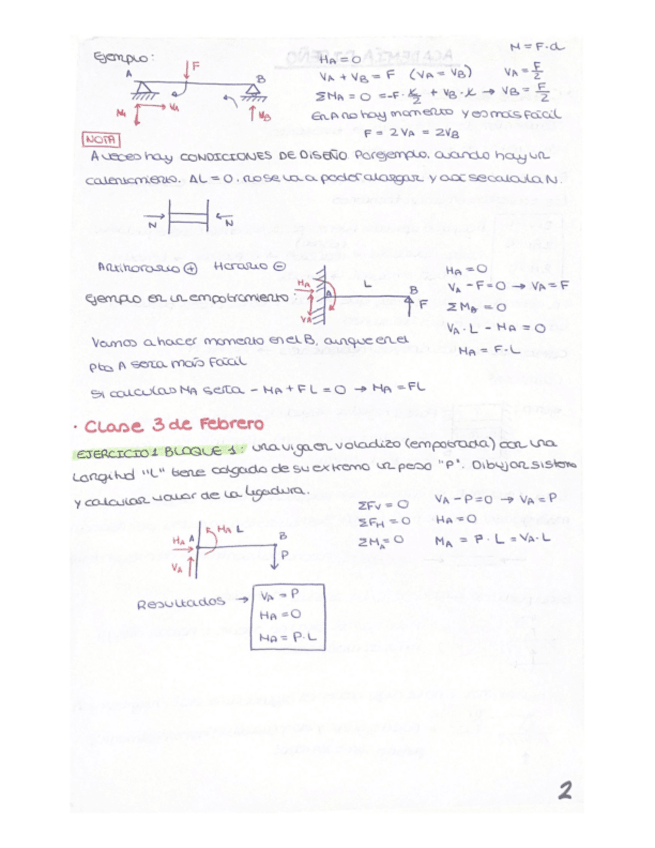 M = F·d
Ejemplo:
A
F
B
HA
VA
VB
HA = 0
VA + VB = F (VA = VB) VA = F/2
ΣMA = 0 = -F · L/2 + VB · L → VB = F/2
En A no hay momento y es mas facil
F = 2VA = 2VB
NOTA
A veces hay CONDICIONES DE DISEÑO Por ejemplo, cuando hay un
calentamiento. ΔL = 0, no se va a poder alargar y asi se calcula N.
N
N
Antihorario ⊕ Horario ⊖
Ejemplo en un empotramiento:
HA
A
VA
L
B
F
HA = 0
VA - F = 0 → VA = F
ΣMB = 0
VA · L - MA = 0
MA = F · L
Vamos a hacer momento en el B, aunque en el
pto A seria más facil
Si calculas MA seria - MA + FL = 0 → MA = FL
· Clase 3 de Febrero
EJERCICIO 1 BLOQUE 1: una viga en voladizo (empotrada) con una
longitud "L" tiene colgado de su extremo un peso "P". Dibujar sistema
y calcular valor de la ligadura.
HA
A
MA
L
B
P
VA
ΣFV = 0 VA - P = 0 → VA = P
ΣFH = 0 HA = 0
ΣMA = 0 MA = P · L = VA · L
Resultados →
VA = P
HA = 0
MA = P · L
2